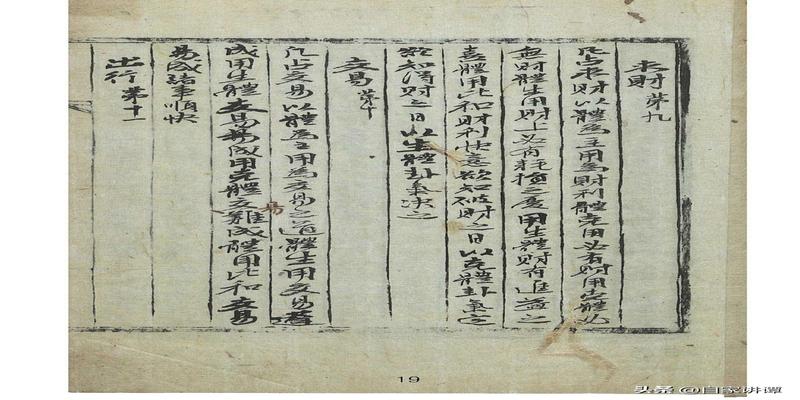 求財第九
凡占求財以體為主用為財利體克用必有財用克體必
無財體生用財上必有耗損之虞用生體財有進益之
喜體用比和財利快意欲知破財之日以克體卦氣定
欲知得財之日以生體卦氣決之
交易第十
凡占交易以體為主用為交易之道體生用交易
成用生體交易易成用克體交易難成體用比和交易
易成諸事順快
出行第十一
19
头条 @自家讲谭